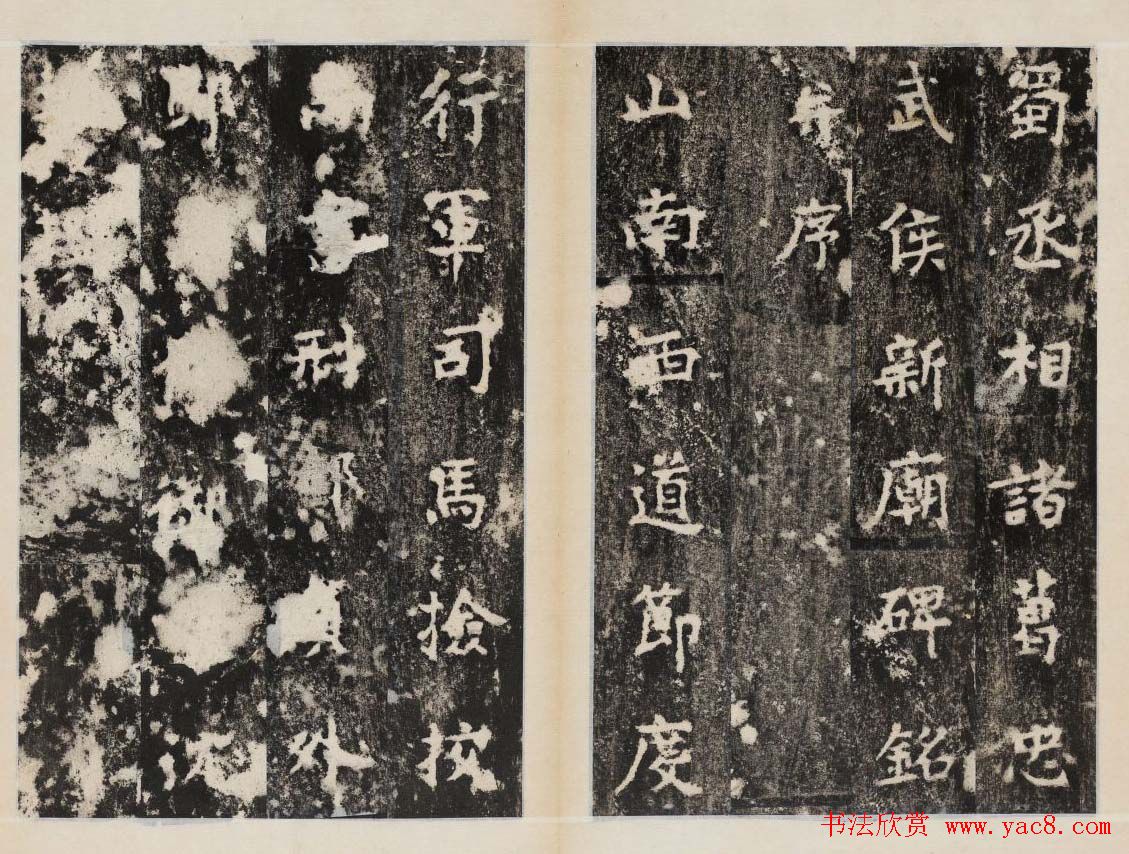 蜀丞相諸葛忠
武侯新廟碑銘
并序
山南西道節度
行軍司馬撿挍
尚書刑部員外
郎御
书法欣赏 www.yac8.com